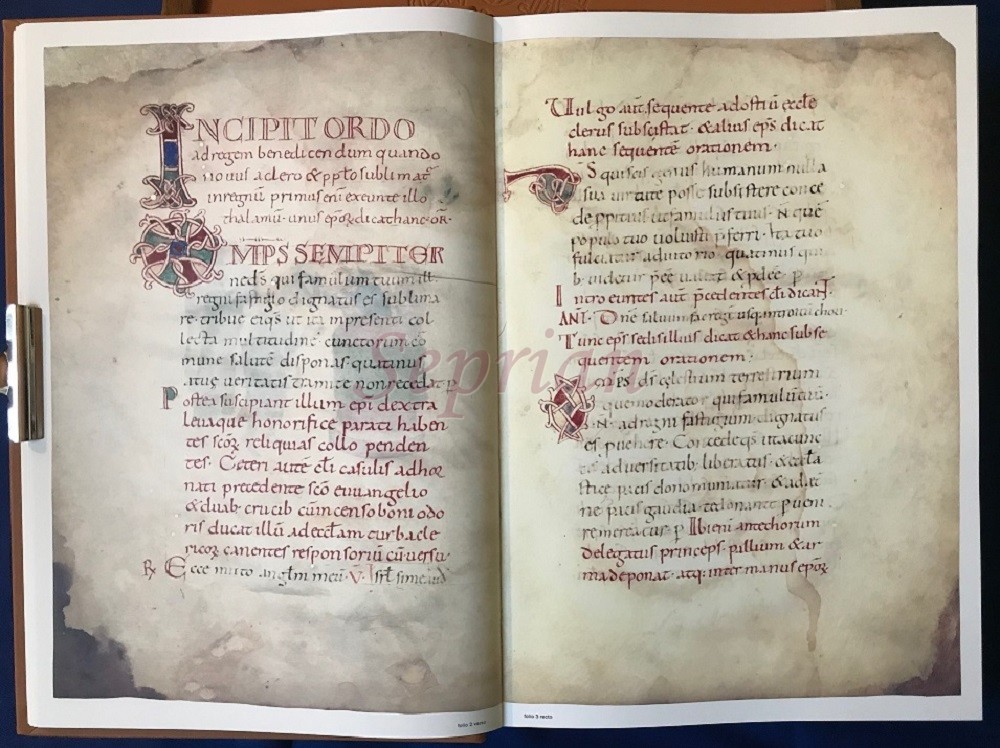 INCIPIT ORDO
ad regem benedicendum quando
novus a clero & ppło sublimat᷑
in regnū primus enī exeunte illo
thalamū unus epoꝝ dicat hanc or̄
OMPS SEMPITER
ne dš qui famulum tuum ill.
regni fastigio dignatus es sublima
re tribue ei qs ut ita in presenti col
lecta multitudine cunctorum cō
mune salutē disponas quatinus
a tuę veritatis tramite non recedat p
Postea suscipiant illum epi dextra
levaque honorifice parati haben
tes scoꝝ reliquias collo penden
tes. Ceteri autē cłi casulis adhoꝛ
nati precedente scō euuangelio
& duab crucib cū incenso boni odo
ris ducat illū ad ecclam turba cle
ricoꝝ canentes responsoriū cū versu
℞ Ecce mitto anglm meū V Isrl si me aud
Vulgo aūt sequente ad ostiū ecclę
clerus subsistat & alius eps dicat
hanc sequentē orationem
DS qui scis genus humanum nulla
sua virtute posse subsistere conce
de ppitius ut famulus tuus N quē
populo tuo voluisti p̄ferri ita tuo
fulciatur adiutorio quatinus qui
b; p̄esse valeat & p̄dee p
Introeuntes aūt p̄cedentes cłi dicant
ANT. Dne salvum fac regē usq; introitū chori
Tunc eps sedis illius dicat & hanc subse
quentem orationem
OMPS dš cęlestium terrestrium
quę moderator qui famulū tuū
N ad regni fastigium dignatus
es p̄vehere Concede qs ut a cunc
tis adversitatib; liberatus & eccła
sticę pacis dono muniatur & ad ęt̄
nę pacis gaudia te donante p̄veni
re mereatur p Ibi enī ante chorum
Delegatus princeps pillium & ar
ma deponat atq; inter manus epoꝝ
Seprian
folio 3 recto